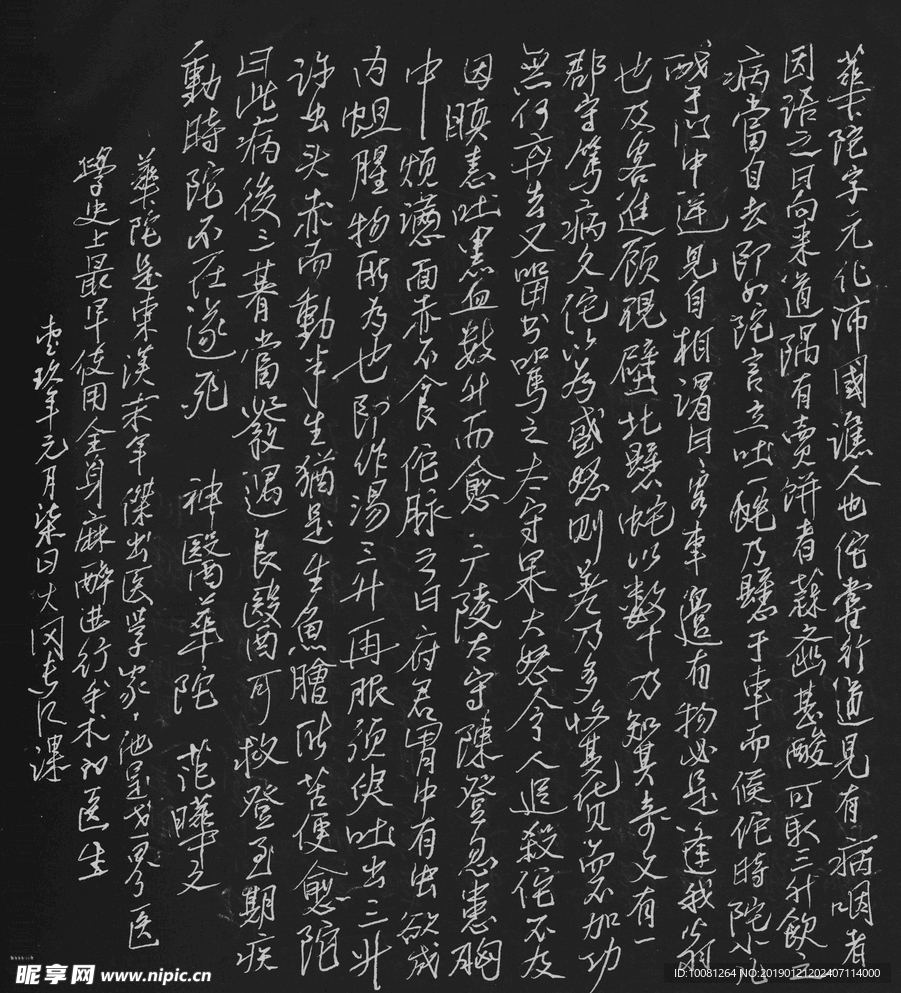 華陀字元化沛國譙人也佗嘗行道見有病咽者
因語之曰向来道隅有賣餅者蒜齑甚酸可取三升飲之
病當自去即如陀言立吐一蛇乃懸于車而候佗時陀小兒
戲于门中逆見自相謂曰客車邊有物必是逢我公
也及客進顧視壁北懸蛇以數十乃知其奇又有一
郡守篤病久佗以為盛怒則差乃多受其货而不加功
無何弃去又留书骂之太守果大怒令人追殺佗不及
因瞋恚吐黑血数升而愈广陵太守陳登忽患胸
中煩懣面赤不食佗脉之曰府君胃中有虫欲成
内疽腥物所為也即作湯三升再服須臾吐出三升
许虫头赤而動半生猶是生魚膾所苦便愈陀
曰此病後三朞當發遇良醫可救登至期疾
動時陀不在遂死 神醫華陀 范曄文
華陀是東漢末年傑出医学家他是世界医
學史上最早使用全身麻醉进行手术的医生
零玖年元月柒日
昵享网 www.nipic.cn
ID:10081264 NO:20190121202407114000